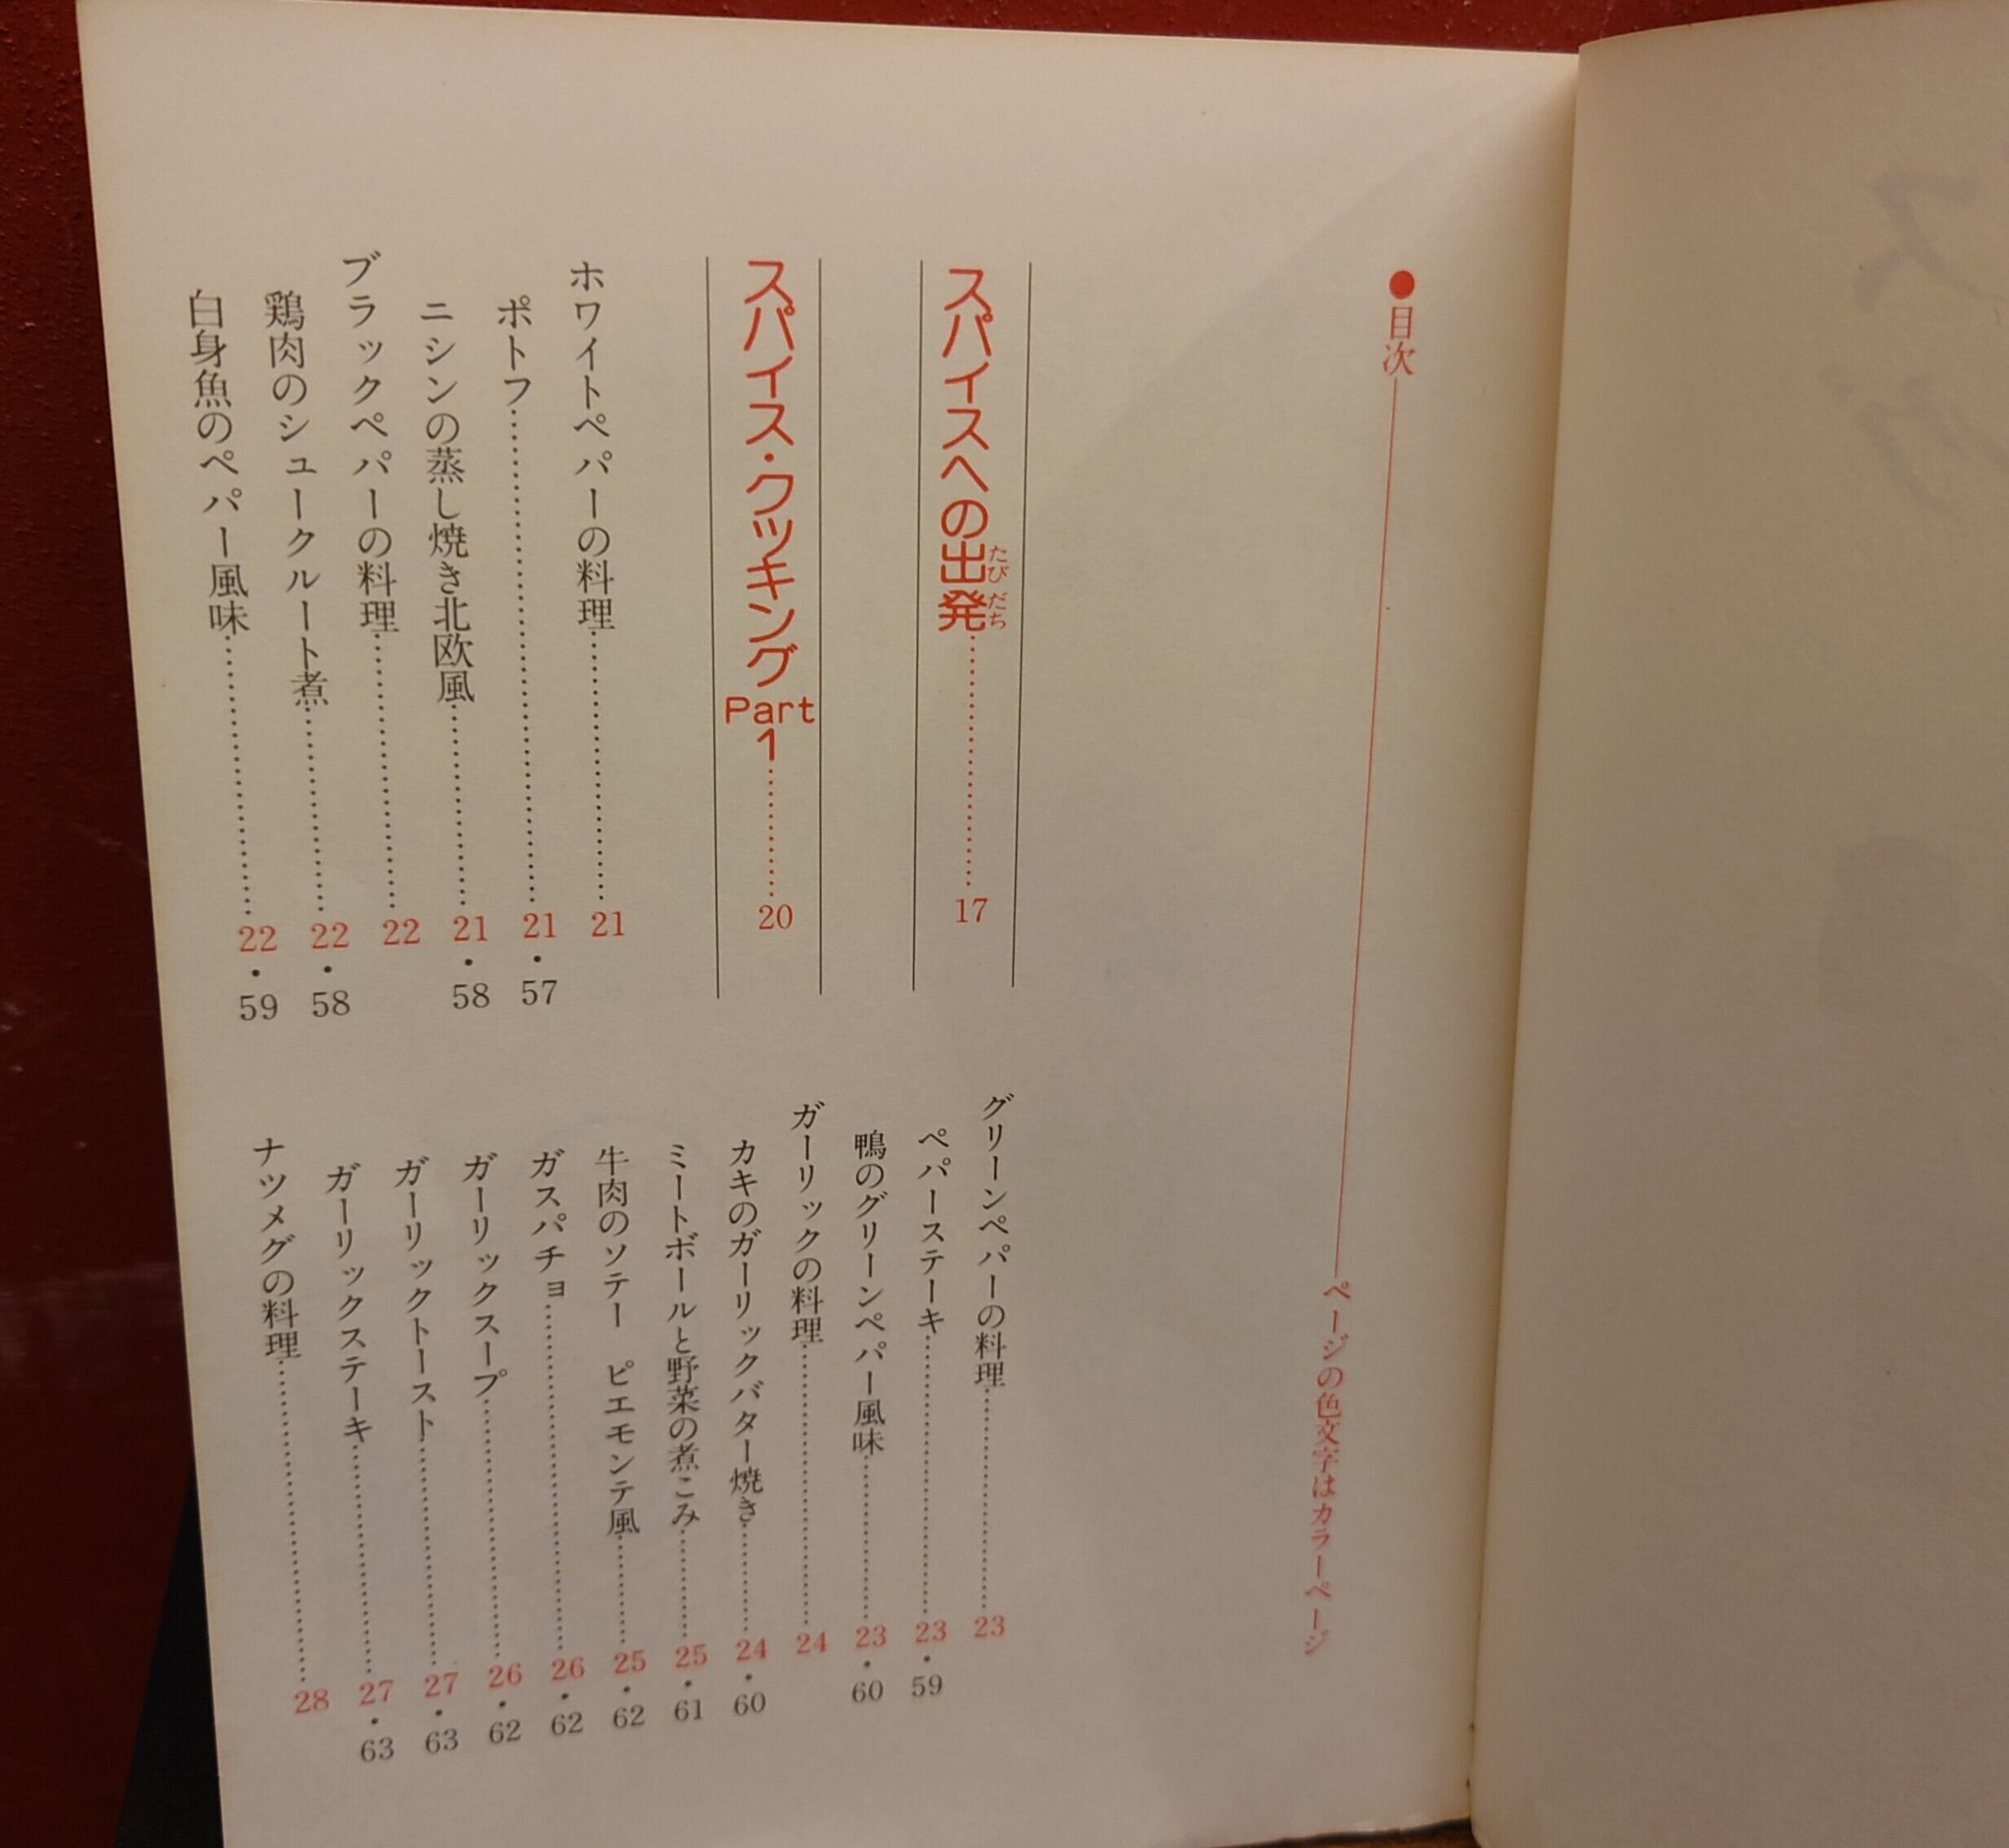 ●目次
ページの色文字はカラーページ
スパイスへの出発 たびだち 17
スパイス・クッキング Part 1 20
ホワイトペパーの料理 21
ポトフ 21・57
ニシンの蒸し焼き北欧風 21・58
ブラックペパーの料理 22
鶏肉のシュークルート煮 22・58
白身魚のペパー風味 22・59
グリーンペパーの料理 23
ペパーステーキ 23・59
鴨のグリーンペパー風味 23・60
ガーリックの料理 24
カキのガーリックバター焼き 24・60
ミートボールと野菜の煮こみ 25・61
牛肉のソテー ピエモンテ風 25・62
ガスパチョ 26・62
ガーリックスープ 26・62
ガーリックトースト 27・63
ガーリックステーキ 27・63
ナツメグの料理 28